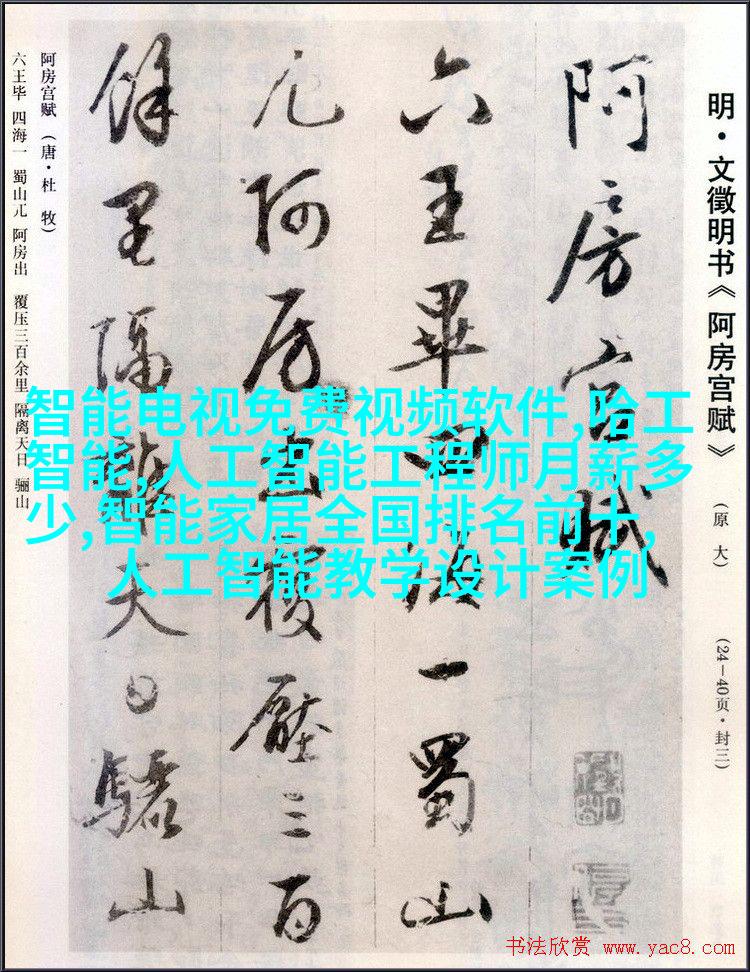 明·文徵明书《阿房宫赋》（原大）（24－40页·封三）
阿房宫赋
六王畢四海一蜀山
兀阿房出覆壓三百
餘里隔離天日驪山
阿房宫赋（唐·杜 牧）
六王毕 四海一 蜀山兀 阿房出 覆压三百余里 隔离天日 骊山
智能电视免费视频软件,哈工
智能,人工智能工程师月薪多
少,智能家居全国排名前十,
人工智能教学设计案例
书法欣赏 www.yac8.com